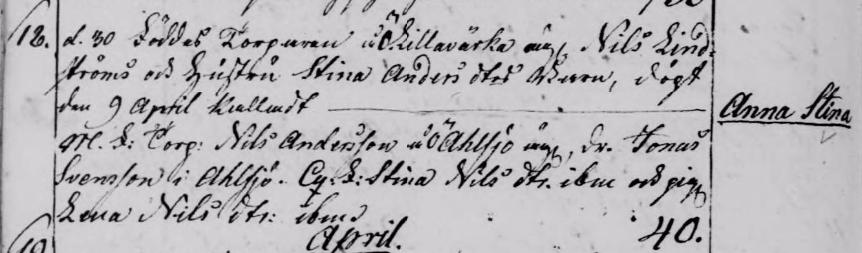 18. d. 30 Föddes Torparen u Ö Lillaverka äg. Nils Lind-
ströms och hustru Stina Anders dtrs Barn, döpt
den 9 April kalladt Anna Stina
M. E: Torp: Nils Andersson u Ö Ahlsjö äg, dr. Jonas
Svensson i Ahlsjö. Qv. E: Stina Nils dtr. ibm och pig.
Lena Nils dtr: ibm
19 April. 40.